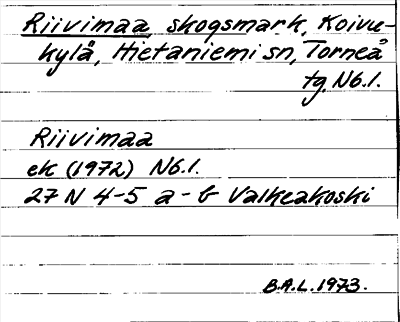 Riivimaa, skogsmark, Koivu-
kylä, Hietaniemi sn, Torneå
tg. Nb.l.
Riivimaa
ek (1972) Nb.l.
27 N 4-5 a-b Valkeakoski
B.A.L. 1973.